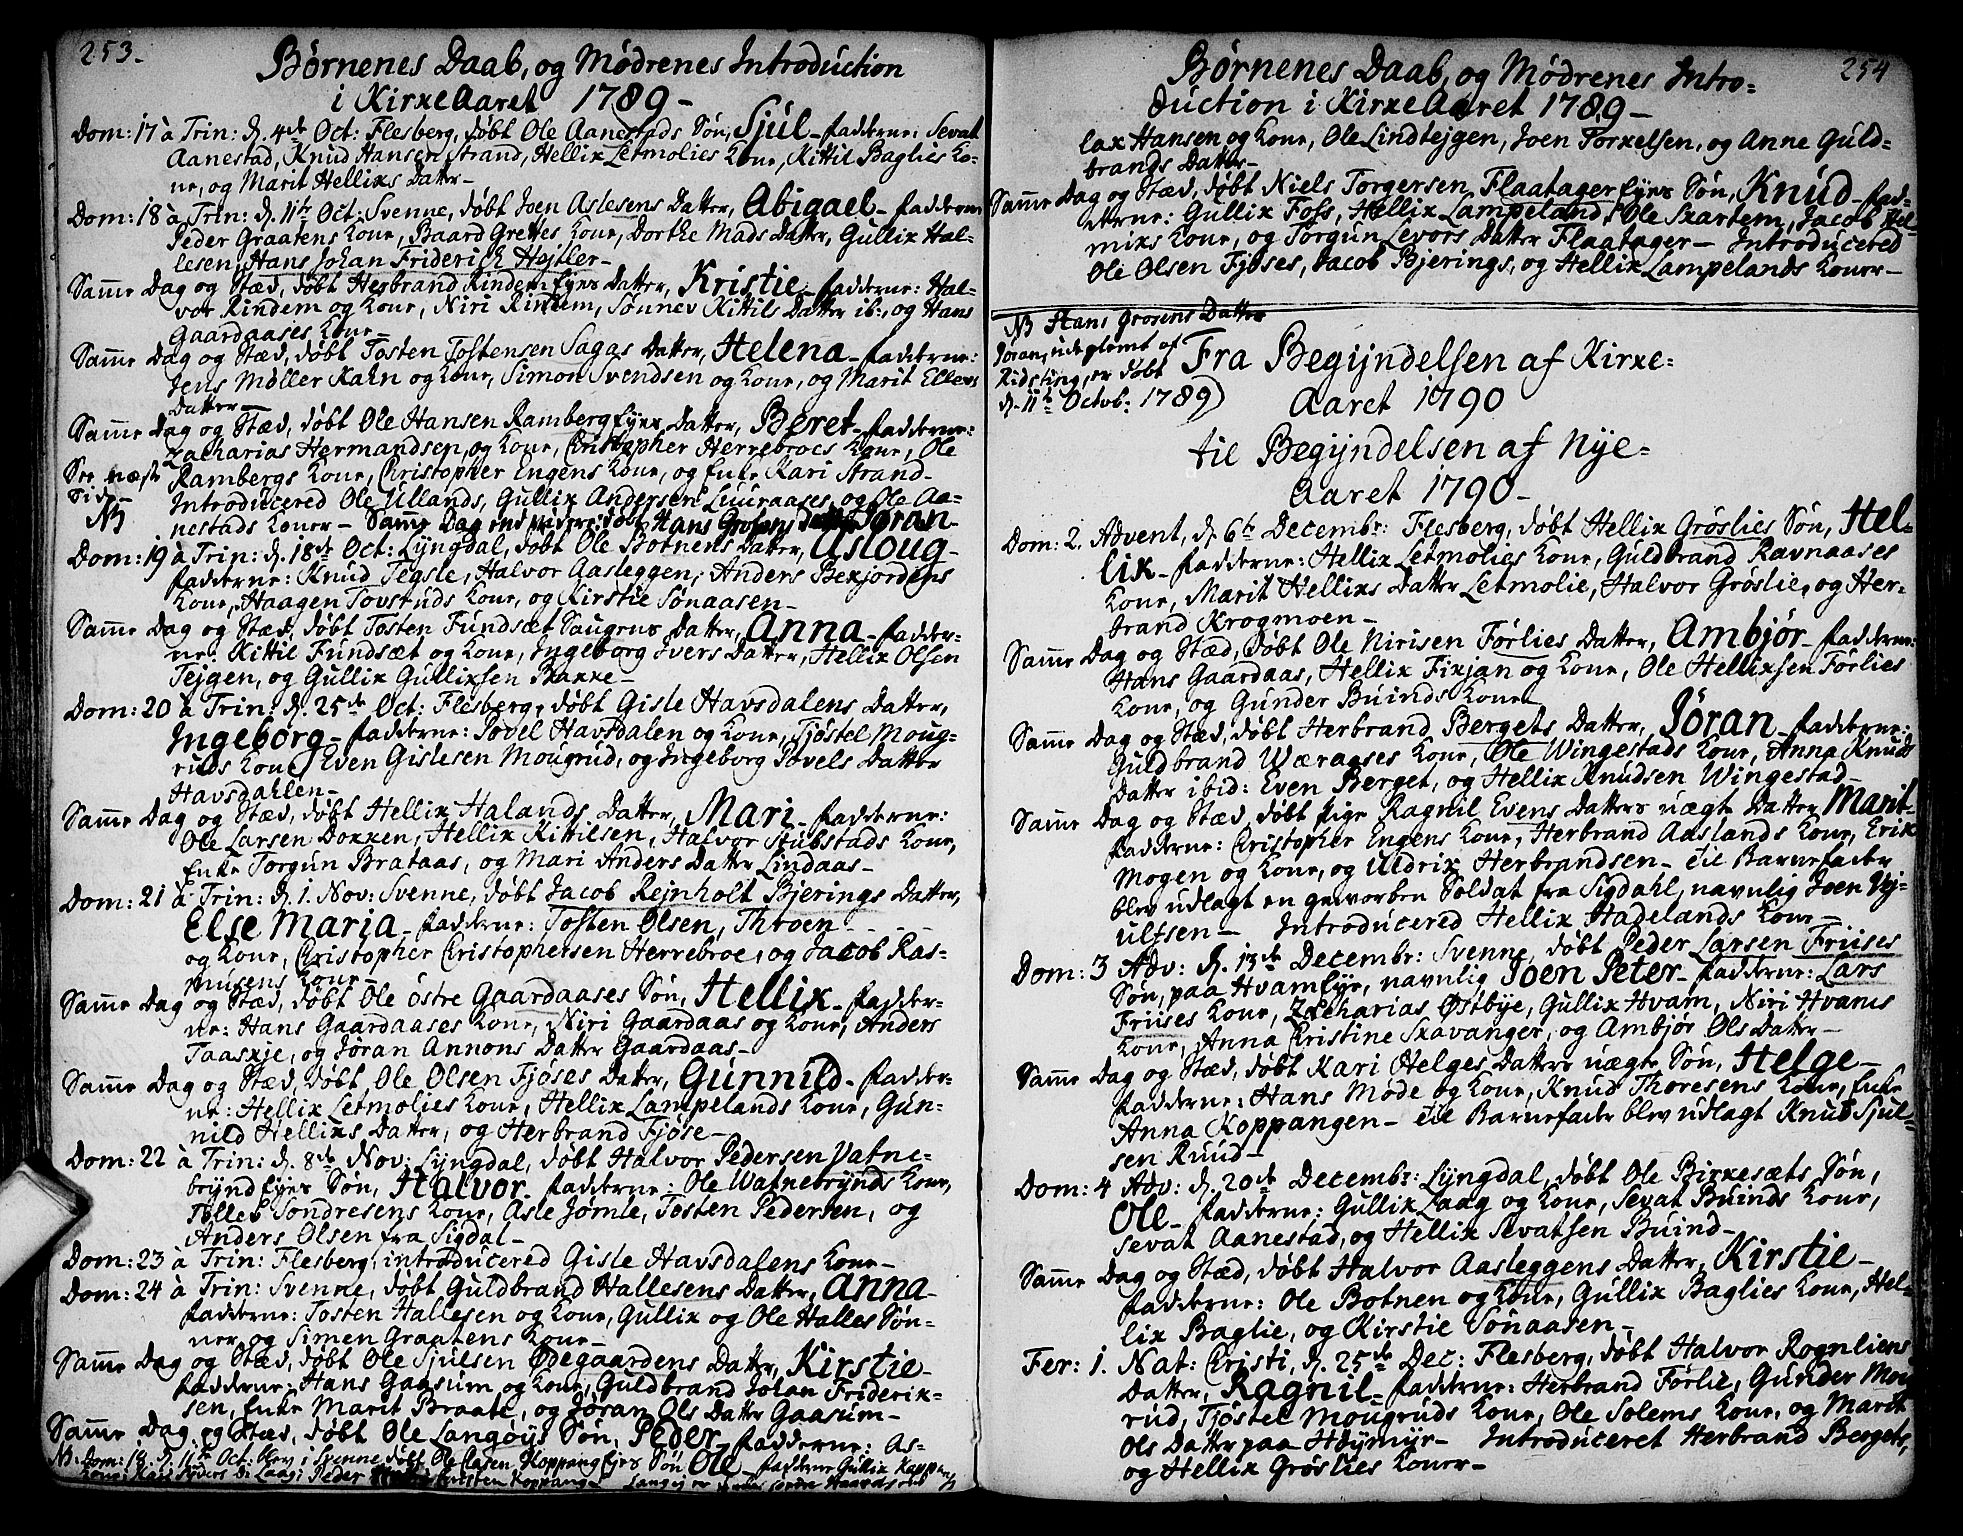 253.
Børnenes Daab, og Mødrenes Introduction
i KirkeAaret 1789 -
Dom: 17 à Trin: d. 4de Oct: Flesberg, døbt Ole Aanestads Søn, Sjul - Fadderne: Sevat
Aanestad, Knud Hansen Strand, Hellik Letmolies Kone, Kittil Baglies Ko-
ne, og Marit Helliks Datter -
Dom: 18 à Trin: d. 11te Oct: Svenne, døbt Joen Aslesens Datter, Abigael - Fadderne
Peder Graatens Kone, Baard Grettes Kone, Dorthe Mads Datter, Gullik Hal-
lesen, Hans Johan Friderich Hojtler -
Samme Dag og Stæd, døbt Herbrand Rindem Eyes Datter, Kristie - Fadderne: Hal-
vor Rindem og Kone, Niri Rindem, Sønnev Kittils Datter ib:, og Hans
Gaardaases Kone -
Samme Dag og Stæd, døbt Tosten Tostensen Sagas Datter, Helena - Fadderne:
Jens Møller Kahn og Kone, Simon Svendsen og Kone, og Marit Ellevs
Datter -
Samme Dag og Stæd, døbt Ole Hansen Ramberg Eyes Datter, Beret - Fadderne:
Zacharias Hermandsen og Kone, Christopher Herrebroes Kone, Ole
See næste Rambergs Kone, Christopher Engens Kone, og Enke Kari Strand -
Side Introducered Ole Ullands, Gullik Andersen Luuraases, og Ole Aa-
NB nestads Koner - Samme Dag end videre døbt Hans Grosens Datter Jøran -
Dom: 19 à Trin: d. 18de Oct: Lÿngdal, døbt Ole Botnens Datter, Asloug -
Fadderne: Knud Tegsle, Halvor Aasleggen, Anders Bekjordens
Kone, Haagen Tovsruds Kone, og Kirstie Sønaasen -
Samme Dag og Stæd, døbt Tosten Fundsæt Saugens Datter, Anna - Fadder-
ne: Kittil Fundsæt og Kone, Ingeborg Ivers Datter, Hellik Olsen
Tejgen, og Gullik Gulliksen Bakke -
Dom: 20 à Trin: d. 25de Oct: Flesberg, døbt Gisle Havsdalens Datter,
Ingeborg - Fadderne: Povel Havsdalen og Kone, Tjøstel Moug-
ruds Kone, Even Gislesen Mougrud, og Ingeborg Povels Datter
Havsdahlen -
Samme Dag og Stæd, døbt Hellik Halands Datter, Mari - Fadderne:
Ole Larsen Dokken, Hellik Kittilsen, Halvor Stubstads Kone,
Enke Torgun Brataas, og Mari Anders Datter Lindaas -
Dom: 21 à Trin: d. 1. Nov: Svenne, døbt Jacob Rejnholt Bjerings Datter,
Else Maria - Fadderne: Tosten Olsen, Throen
og Kone, Christopher Christophersen Herrebroe, og Jacob Ras-
musens Kone -
Samme Dag og Stæd, døbt Ole østre Gaardaases Søn, Hellik - Fadder-
ne: Hans Gaardaases Kone, Niri Gaardaas og Kone, Anders
Taaskje, og Jøran Annons Datter Gaardaas -
Samme Dag og Stæd, døbt Ole Olsen Fjøses Datter, Gunnild - Fadder-
ne: Hellik Letmolies Kone, Hellik Lampelands Kone, Gun-
nild Helliks Datter, og Herbrand Fjøse -
Dom: 22 à Trin: d. 8de Nov: Lÿngdal, døbt Halvor Pedersen Vatne-
brÿnd Eyes Søn, Halvor - Fadderne: Ole Watnebrÿnds Kone,
Tollev Tondresens Kone, Asle Jørnle, Tosten Pedersen, og
Anders Olsen fra Sigdal -
Dom: 23 à Trin: Flesberg, introducered Gisle Havsdalens Kone -
Dom: 24 à Trin: Svenne, døbt Guldbrand Hallesens Datter, Anna -
Fadderne: Tosten Hallesen og Kone, Gullik og Ole Halles Søn-
ner, og Simen Graatens Kone -
Samme Dag og Stæd, døbt Ole Sjulsen Ødegaardens Datter, Kirstie -
Fadderne: Hans Gaasum og Kone, Guldbrand Johan Friderik-
sen, Enke Marit Braate, og Jøran Ols Datter Gaasum -
Samme Dag og Stæd, døbt Ole Langøÿs Søn, Peder - Fadderne: As-
NB. Dom: 18. d. 11te Oct: blev i Svenne døbt Ole Olsen Koppang Eyes Søn, Ole - Fadderne Gullik Koppang
254
Børnenes Daab, og Mødrenes Intro-
duction i KirkeAaret 1789 -
lak Hansen og Kone, Ole Lindtejgen, Joen Torkelsen, og Anne Guld-
brands Datter -
Samme Dag og Stæd, døbt Niels Torgersen Flaatager Eyes Søn, Knud - Fad-
derne: Gullik Foss, Hellik Lampeland, Ole Skartem, Jacob Hel-
miks Kone, og Torgun Levors Datter Flaatager - Introducered
Ole Olsen Fjøses, Jacob Bjerings, og Hellik Lampelands Koner -
NB Hans Grosens Datter
Jøran, udeglemt af
Ridsting, er døbt
d. 11te Octob: 1789)
Fra Begÿndelsen af Kirke-
Aaret 1790
til Begÿndelsen af Nÿe-
Aaret 1790 -
Dom: 2. Advent, d. 6te Decembr: Flesberg, døbt Hellik Grøslies Søn, Hel-
lik - Fadderne: Hellik Letmolies Kone, Guldbrand Ravnaases
Kone, Marit Helliks Datter Letmolie, Halvor Grøslie, og Her-
brand Krogmoen -
Samme Dag og Stæd, døbt Ole Nirisen Førlies Datter, Ambjør - Fadderne:
Hans Gaardaas, Hellik Fikjan og Kone, Ole Helliksen Førlies
Kone, og Gunder Buinds Kone
Samme Dag og Stæd, døbt Herbrand Bergets Datter, Jøran - Fadderne:
Guldbrand Wæraases Kone, Ole Wingestads Kone, Anna Knuds
Datter ibid: Even Berget, og Hellik Knudsen Wingestad -
Samme Dag og Stæd, døbt Pige Ragnil Evens Datters uægte Datter Marit -
Fadderne: Christopher Engens Kone, Herbrand Aaslands Kone, Erik
Mogen og Kone, og Uldrik Herbrandsen - Til Barnefader
blev udlagt en geworben Soldat fra Sigdahl, navnlig Joen Vÿ-
ulfsen - Introducered Hellik Hadelands Kone -
Dom: 3 Adv: d. 13de Decembr: Svenne, døbt Peder Larsen Friises
Søn, paa Hvam Eye, navnlig Joen Peter - Fadderne: Lars
Friises Kone, Zacharias Østbÿe, Gullik Hvam, Niri Hvams
Kone, Anna Christine Skavanger, og Ambjør Ols Datter -
Samme Dag og Stæd, døbt Kari Helges Datters uægte Søn, Helge -
Fadderne: Hans Mode og Kone, Knud Thoresens Kone, Enke
Anna Koppangen - Til Barnefader blev udlagt Knud Sjul-
sen Ruud -
Dom: 4 Adv: d. 20de Decembr: Lÿngdal, døbt Ole Birkesæts Søn,
Ole - Fadderne: Gullik Laag og Kone, Sevat Buinds Kone,
Sevat Aanestad, og Hellik Sevatsen Buind -
Samme Dag og Stæd, døbt Halvor Aasleggens Datter, Kirstie -
Fadderne: Ole Botnen og Kone, Gullik Baglies Kone, Hel-
lik Baglie, og Kirstie Sønaasen -
Fer: 1. Nat: Christi, d. 25de Dec: Flesberg, døbt Halvor Rognliens
Datter, Ragnil - Fadderne: Herbrand Førlie, Gunder Mou-
rud, Tjøstel Mougruds Kone, Ole Solems Kone, og Marit
Ols Datter paa Høÿmÿr - Introduceret Herbrand Bergets,
og Hellik Grøslies Koner -